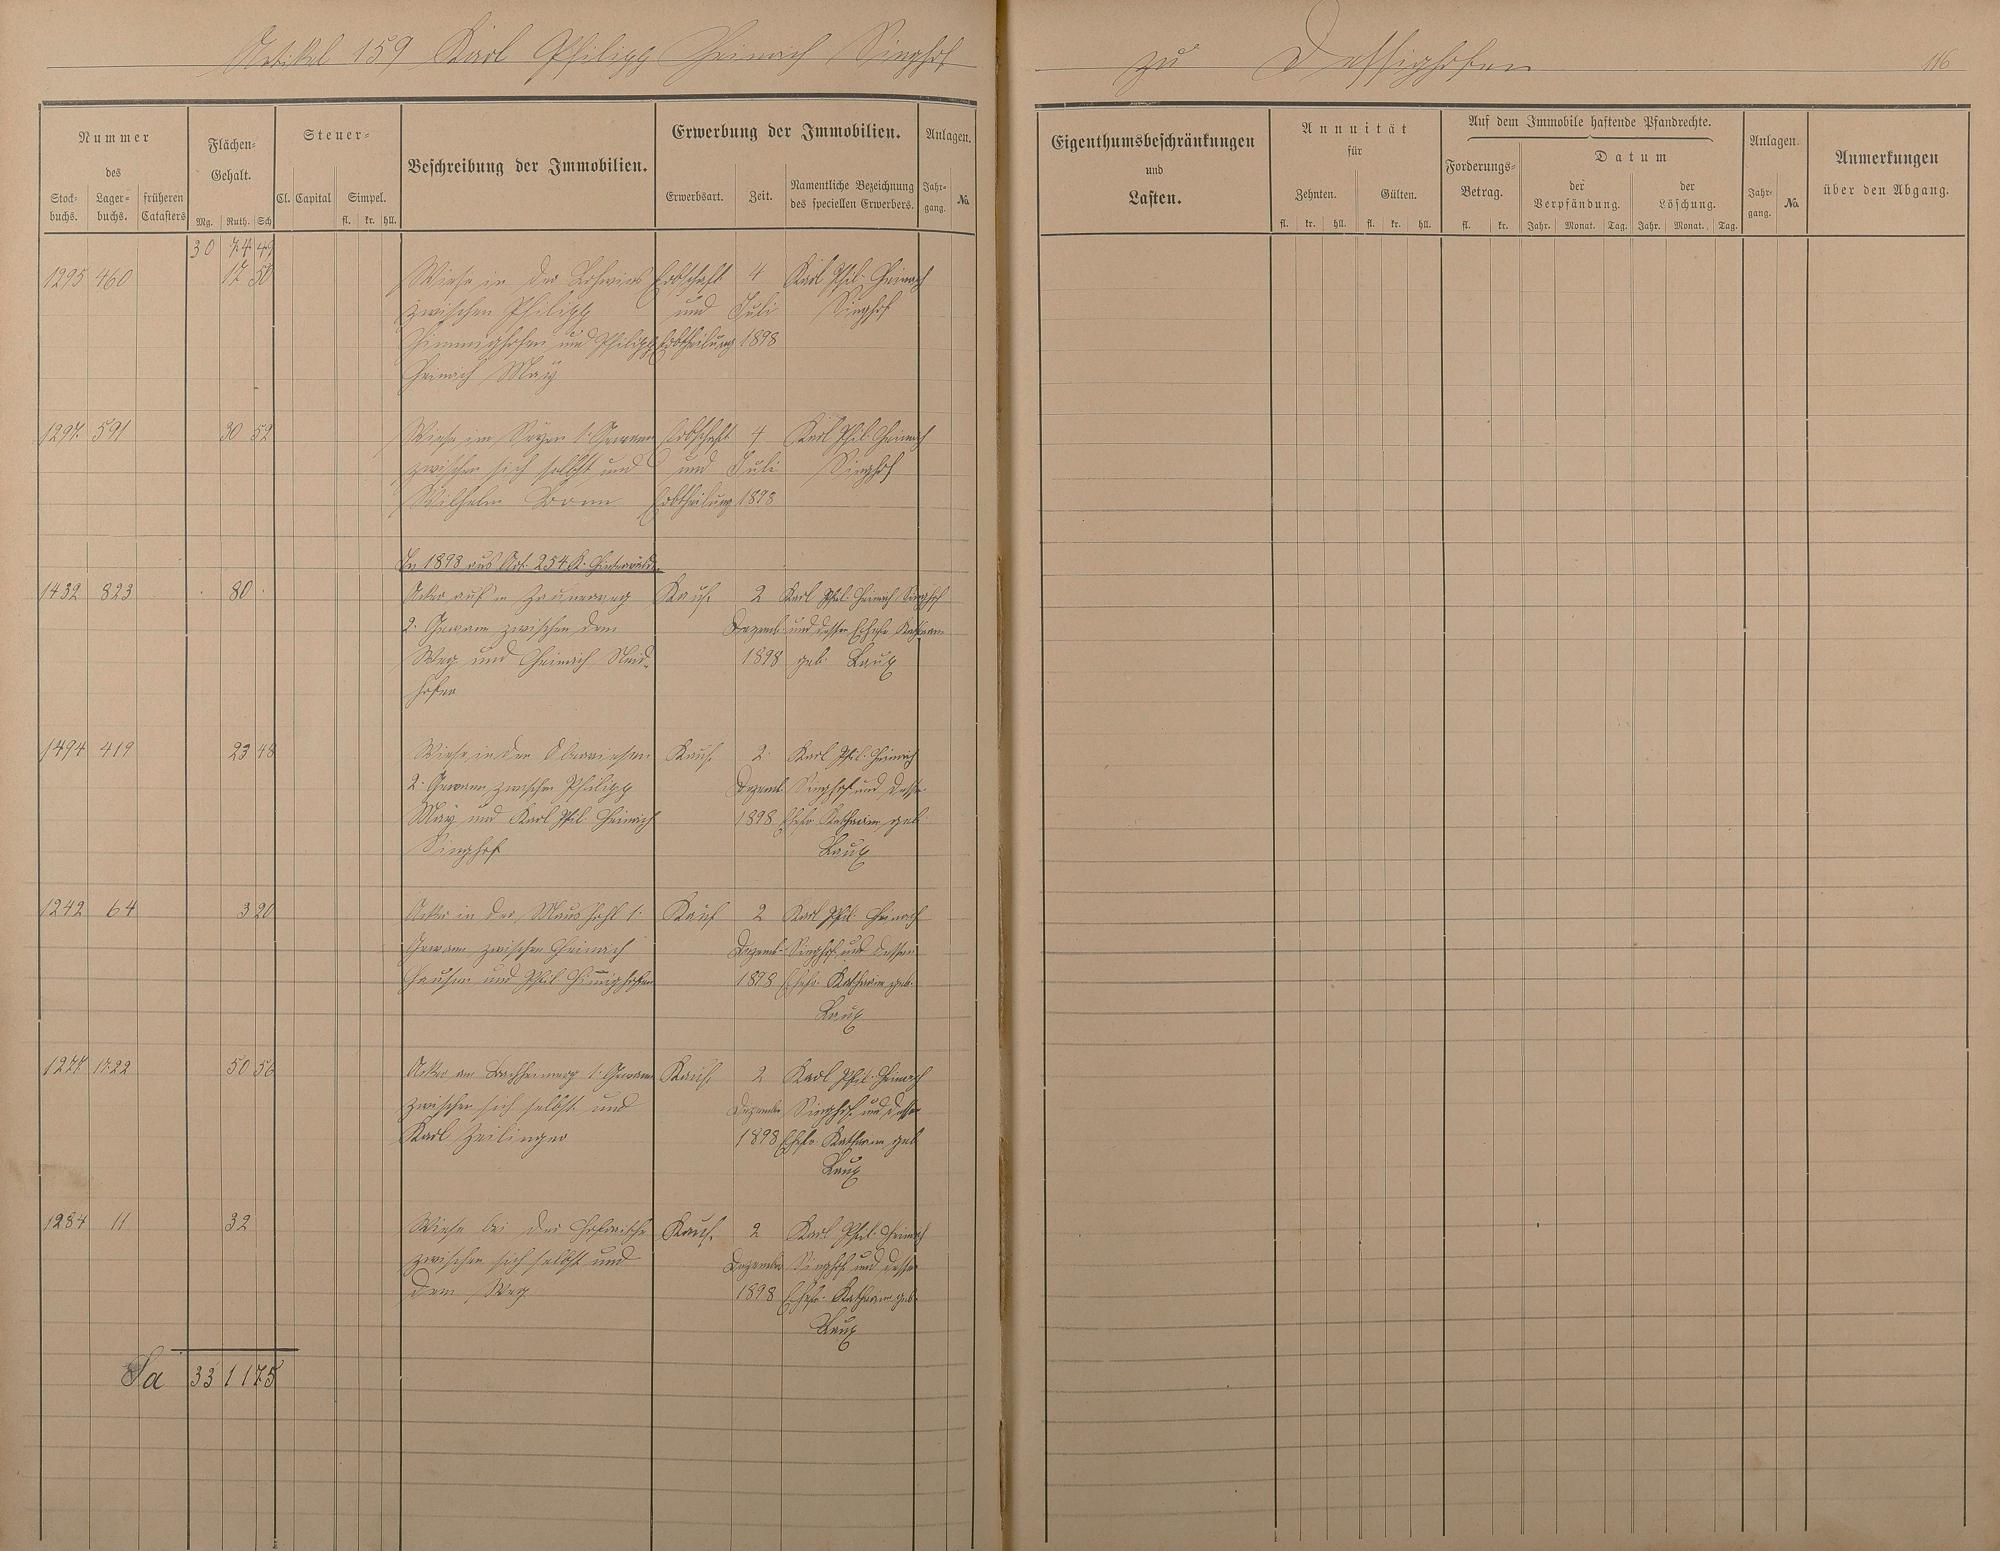 Artikel 159 Karl Philipp Heinrich Singhof
zu Dessighofen
116
Nummer
des
Stock-
buchs.
Lager-
buchs.
früheren
Catasters
Flächen-
Gehalt.
Mg. Ruth. Sch
Steuer-
Cl. Capital
Simpel.
fl. kr. hll.
Beschreibung der Immobilien.
Erwerbung der Immobilien.
Erwerbsart.
Zeit.
Namentliche Bezeichnung
des speciellen Erwerbers.
Anlagen.
Jahr-
gang.
No.
Eigenthumsbeschränkungen
und
Lasten.
Annuität
für
Zehnten.
Gülten.
fl. kr. hll. fl. kr. hll.
Auf dem Immobile haftende Pfandrechte.
Forderungs-
Betrag.
fl. kr.
Datum
der
Verpfändung.
der
Löschung.
Jahr. Monat. Tag. Jahr. Monat. Tag.
Anlagen.
Jahr-
gang.
No.
Anmerkungen
über den Abgang.
30 74 49
1295 460 17 50 Wiese in der Erbschaft 4 Karl Phil. Heinrich
zwischen Philipp und Juli Singhof
Himmighofen und Philipp Erbtheilung 1898
Heinrich May
1297 591 30 52 Wiese im 1. Gewann Erbschaft 4 Karl Phil. Heinrich
zwischen sich selbst und und Juli Singhof
Wilhelm Erbtheilung 1898
In 1898 aus Art. 254
1432 823 80 Acker auf'm 2 Karl Phil. Heinrich Singhof
2. Gewann zwischen dem Dezemb. und dessen Ehefr. Katharin
Weg und Heinrich Neid- 1898 geb. Laux
höfer
1494 419 23 48 Wiese in den Oberwiesen Kauf 2. Karl Phil. Heinrich
2. Gewann zwischen Philipp Dezemb. Singhof und dessen
May und Karl Phil. Heinrich 1898 Ehefr. Katharin geb.
Singhof Laux
1242 64 3 20 Acker in der Maushohl 1. Kauf 2 Karl Phil. Heinrich
Gewann zwischen Heinrich Dezemb. Singhof und dessen
und Phil Himighofen 1898 Ehefr. Katharin geb.
Laux
1277 1722 50 56 Acker am 1. Gewann Kauf 2 Karl Phil. Heinrich
zwischen sich selbst und Dezember Singhof und dessen
Karl Zeilinger 1898 Ehefr. Katharin geb
Laux
1284 11 32 Wiese bei der Kauf 2 Karl Phil. Heinrich
zwischen sich selbst und Dezember Singhof und dessen
dem Weg 1898 Ehefr. Katharin geb.
Laux
Sa 33 11 75